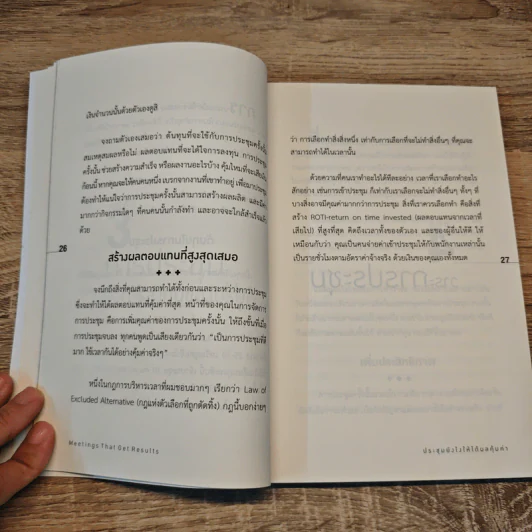 เงินจำนวนนั้นด้วยตัวเองดูสิ
จงถามตัวเองเสมอว่า ต้นทุนที่จะใช้กับการประชุมครั้งนี้
สมเหตุสมผลหรือไม่ ผลตอบแทนที่จะได้ใจการลงทุน การประชุม
ครั้งนั้น ช่วยสร้างความสำเร็จ หรือผลงานอะไรบ้าง คุ้มไหมที่จะเสียเงิน
ก้อนนี้ หากคุณจะให้คนคนหนึ่งเบรกจากงานที่เขาทำอยู่ เพื่อมาประชุม
ต้องทำให้แน่ใจว่าการประชุมครั้งนั้นสามารถสร้างผลผลิต และ
มากกว่ากิจกรรมใดๆ ที่คนคนนั้นกำลังทำ และอาจจะใกล้สำเร็จแล้ว
ด้วย
26
สร้างผลตอบแทนที่สูงสุดเสมอ
จงนึกถึงสิ่งที่คุณสามารถทำได้ทั้งก่อนและระหว่างการประชุม
ซึ่งจะทำให้ได้ผลตอบแทนที่คุ้มค่าที่สุด หน้าที่ของคุณในการจัดการ
การประชุม คือการเพิ่มคุณค่าของการประชุมครั้งนั้น ให้ถึงขั้นที่เมื่อ
การประชุมจบลง ทุกคนพูดเป็นเสียงเดียวกันว่า "เป็นการประชุมที่ดี
มาก ใช้เวลากันได้อย่างคุ้มค่าจริงๆ"
หนึ่งในกฎการบริหารเวลาที่ผมชอบมากๆ เรียกว่า Law of
Excluded Alternative (กฎแห่งตัวเลือกที่ถูกตัดทิ้ง) กฎนี้บอกง่ายๆ
Meetings That Get Results
ว่า การเลือกทำสิ่งสิ่งหนึ่ง เท่ากับการเลือกที่จะไม่ทำสิ่งอื่นๆ ที่คุณจะ
สามารถทำได้ในเวลานั้น
ด้วยความที่คนเราทำอะไรได้ทีละอย่าง เวลาที่เราเลือกทำอะไร
สักอย่าง เช่นการเข้าประชุม ก็เท่ากับเราเลือกจะไม่ทำสิ่งอื่นๆ ทั้งๆ ที่
บางสิ่งอาจมีคุณค่ามากกว่าการประชุม สิ่งที่เราควรเลือกทำ คือสิ่งที่
สร้าง ROTI-return on time invested (ผลตอบแทนจากเวลาที่
เสียไป) ที่สูงที่สุด คิดถึงเวลาทั้งของตัวเอง และของผู้อื่นให้ดี ให้
เหมือนกับว่า คุณเป็นคนจ่ายค่าเข้าประชุมให้กับพนักงานเหล่านั้น
เป็นรายชั่วโมงตามอัตราค่าจ้างจริง ด้วยเงินของคุณเองทั้งหมด
27
ประชุมยังไงให้ได้ผลคุ้มค่า